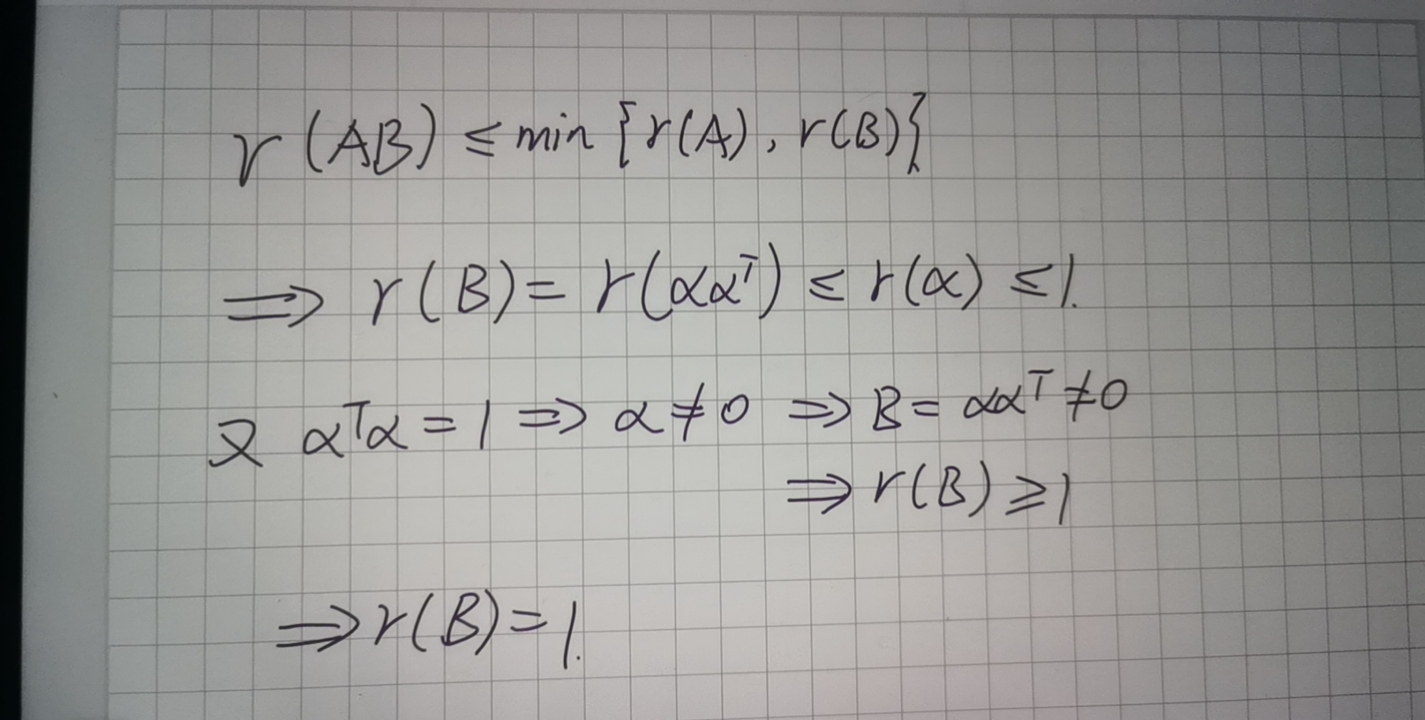 r(AB) ≤ min {r(A), r(B)}
⇒ r(B) = r(αα^T) ≤ r(α) ≤ 1.
又 α^Tα = 1 ⇒ α ≠ 0 ⇒ B = αα^T ≠ 0
⇒ r(B) ≥ 1
⇒ r(B) = 1.